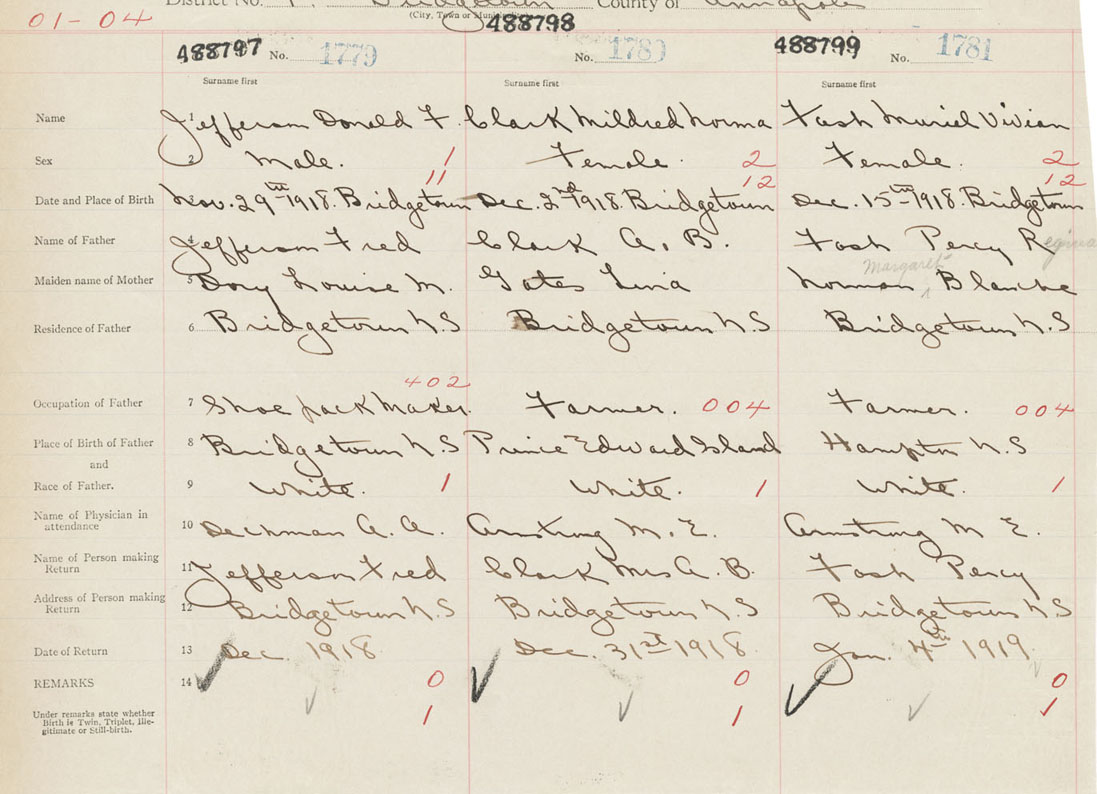 District No. Bridgetown County of Annapolis
01-04 (City, Town or Municipality)
488797 No. 1779 488798 No. 1780 488799 No. 1781
Surname first Surname first Surname first
Name 1 Jefferson Donald F. Clark Mildred Norma Fash Muriel Vivian
Sex 2 Male. 1 Female. 2 Female. 2
11 12 12
Date and Place of Birth Nov. 29th 1918. Bridgetown Dec. 2nd 1918. Bridgetown Dec. 15th 1918. Bridgetown
Name of Father 4 Jefferson Fred Clark A. B. Fash Percy Reginald
Margaret
Maiden name of Mother 5 Dory Louise M. Gates Lina Norman ^ Blanche
Residence of Father 6 Bridgetown N.S Bridgetown N.S Bridgetown N.S
402
Occupation of Father 7 Shoe pack maker. Farmer. 004 Farmer. 004
Place of Birth of Father 8 Bridgetown N.S Prince Edward Island Hampton N.S
and
Race of Father. 9 White. 1 White. 1 White. 1
Name of Physician in
attendance 10 Dechman A. A. Armstrong M. E. Armstrong M. E.
Name of Person making
Return 11 Jefferson Fred Clark Mrs A. B. Fash Percy
Address of Person making
Return 12 Bridgetown N.S Bridgetown N.S Bridgetown N.S
Date of Return 13 Dec. 1918 Dec. 31st 1918. Jan. 4th 1919.
REMARKS 14 0 0 0
Under remarks state whether 1 1 1
Birth is Twin, Triplet, Ille-
gitimate or Still-birth.